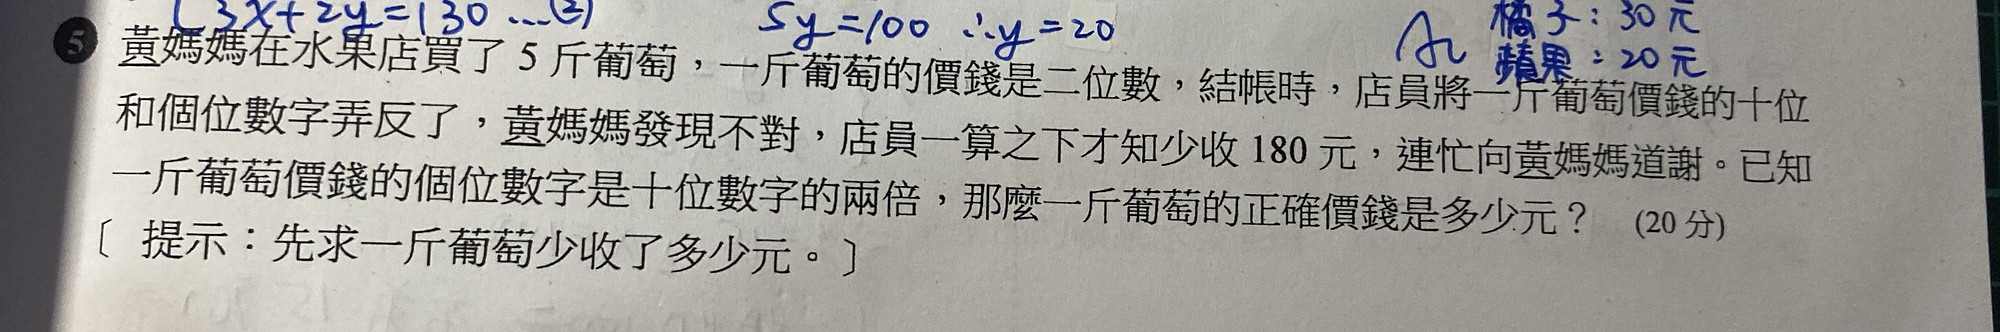 {3x+2y=130 …②
5y=100 ∴y=20
A: 橘子：30元
蘋果：20元
5 黃媽媽在水果店買了 5 斤葡萄，一斤葡萄的價錢是二位數，結帳時，店員將一斤葡萄價錢的十位
和個位數字弄反了，黃媽媽發現不對，店員一算之下才知少收 180 元，連忙向黃媽媽道謝。已知
一斤葡萄價錢的個位數字是十位數字的兩倍，那麼一斤葡萄的正確價錢是多少元？ (20 分)
〔 提示：先求一斤葡萄少收了多少元。〕